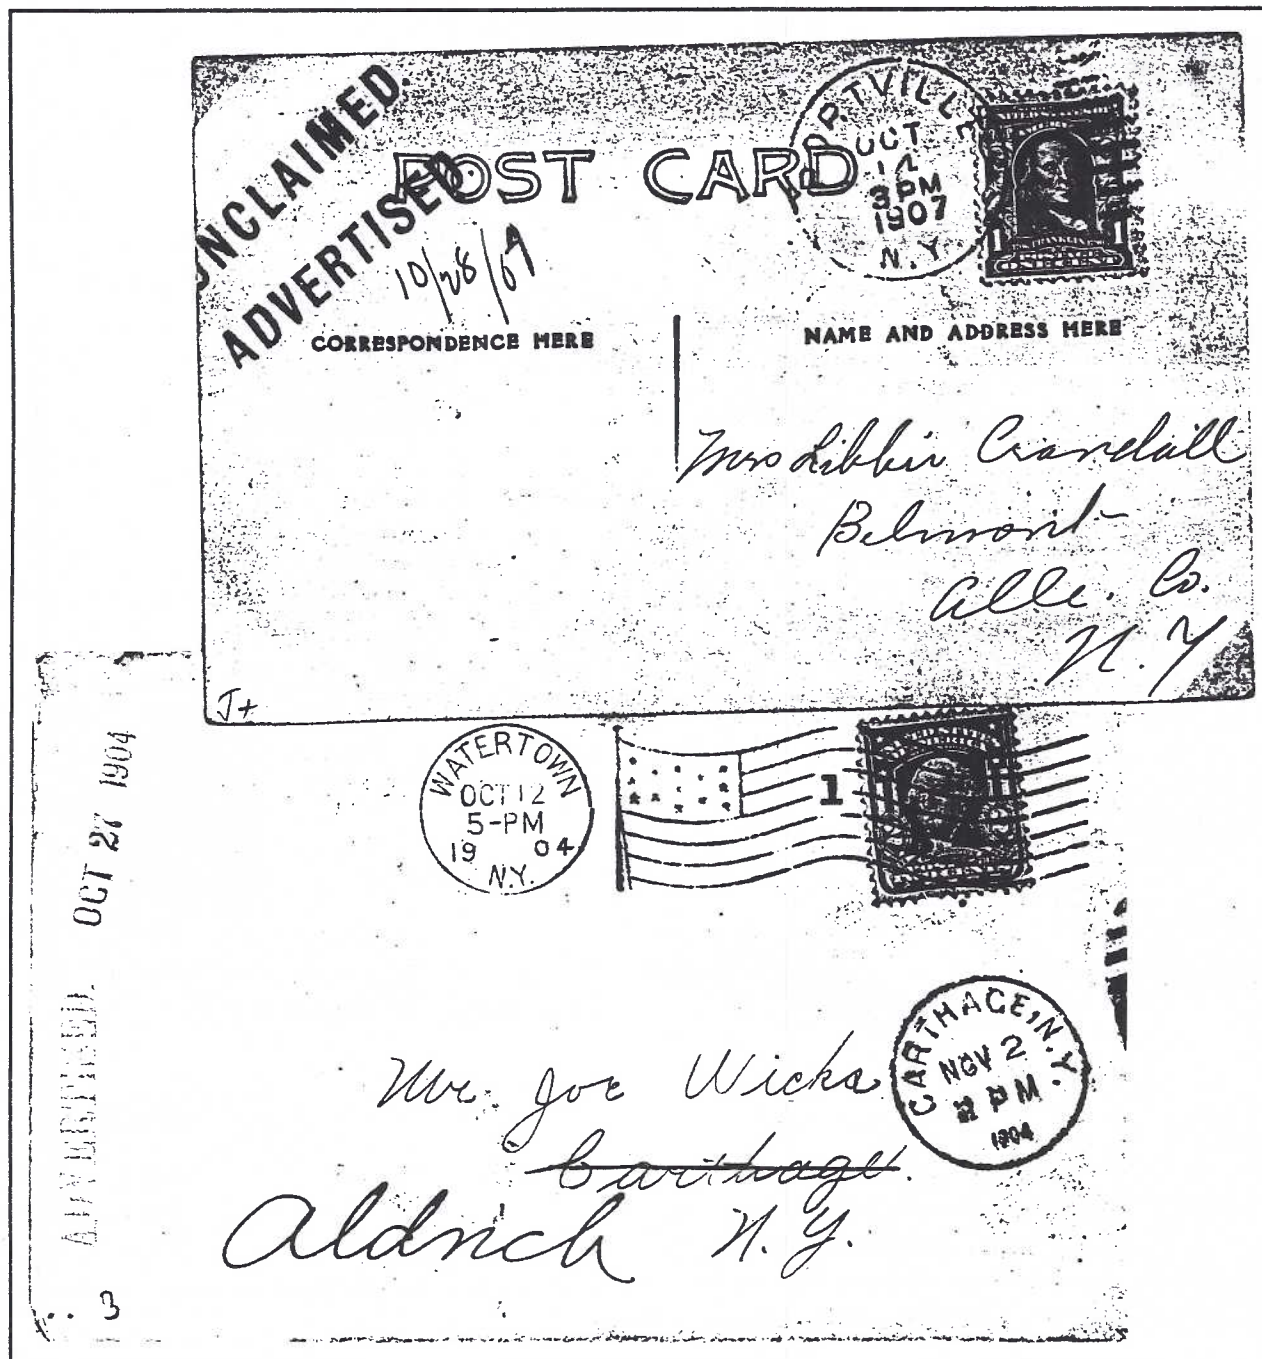 UNCLAIMED.
ADVERTISED.
10/28/07
POST CARD
PORTVILLE
OCT
14
3 PM
1907
N.Y.
FRANKLIN
CORRESPONDENCE HERE
NAME AND ADDRESS HERE
Mrs Libbie Crandall
Belmont
Alle. Co.
N.Y
J+
ADVERTISED. OCT 27 1904
WATERTOWN
OCT 12
5-PM
19 04
N.Y.
1
CARTHAGE, N.Y.
NOV 2
2 PM
1904
Mr. Joe Wicks
Carthage.
Aldrich N.Y.
3